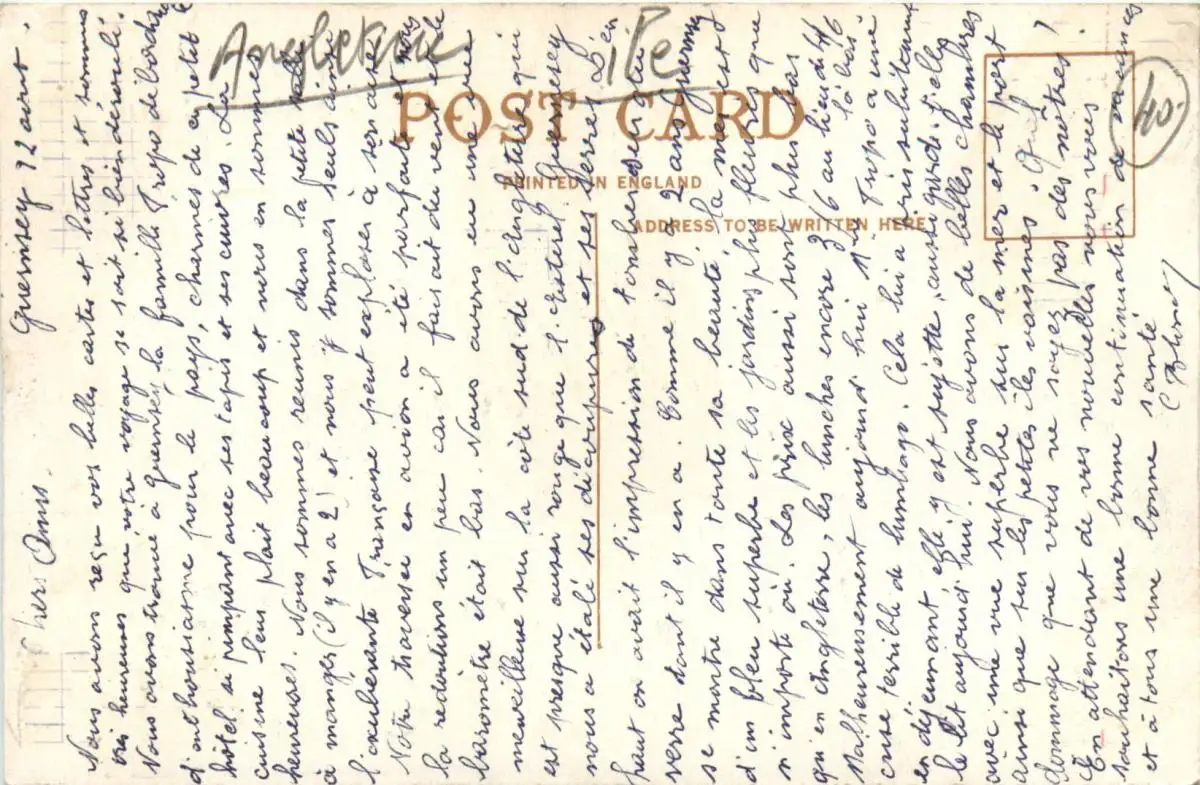 Angleterre
Ile
40.
POST CARD
PRINTED IN ENGLAND
ADDRESS TO BE WRITTEN HERE
Guernesey 12 aout.
Chers Amis.
Nous avons reçu vos belles cartes et lettres et sommes
très heureux que votre voyage se soit si bien déroulé.
Nous avons trouvé à Guernesey la famille Trepo débordante
d'enthousiasme pour le pays, charmés de ce petit
hôtel si pimpant avec ses tapis et ses cuivres. La
cuisine leur plait beaucoup et nous en sommes
heureuses. Nous sommes réunis dans la petite salle
à manger (il y en a 2) et nous y sommes seuls ainsi
l'exubérante Française peut exploser à son aise.
Notre traversée en avion a été parfaite et nous
la redoutions un peu car il faisait du vent et le
baromètre était bas. Nous avons eu une vue
merveilleuse sur la côte sud de l'Angleterre qui
est presque aussi rouge que l'Esterel. Guernesey
nous a étalé ses découpures et ses serres. D'en
haut on avait l'impression de tomber sur du
verre tant il y en a. Comme il y a 2 ans Guernesey
se montre dans toute sa beauté, la mer est
d'un bleu superbe et les jardins plus fleuris que
n'importe où. Les prix aussi sont plus bas
qu'en Angleterre, les lunches encore 3/6 au lieu de 4/6
Malheureusement aujourd'hui Mr Trepo a une
crise terrible de lumbago. Cela lui a pris subitement
en déjeunant et il y est sujette, aussi garde-t-elle
le lit aujourd'hui. Nous avons de belles chambres
avec une vue superbe sur la mer et le port
ainsi que sur les petites iles voisines. Quel
dommage que vous ne soyez pas des nôtres!
En attendant de vos nouvelles nous vous
souhaitons une bonne continuation de vacances
et à tous une bonne santé